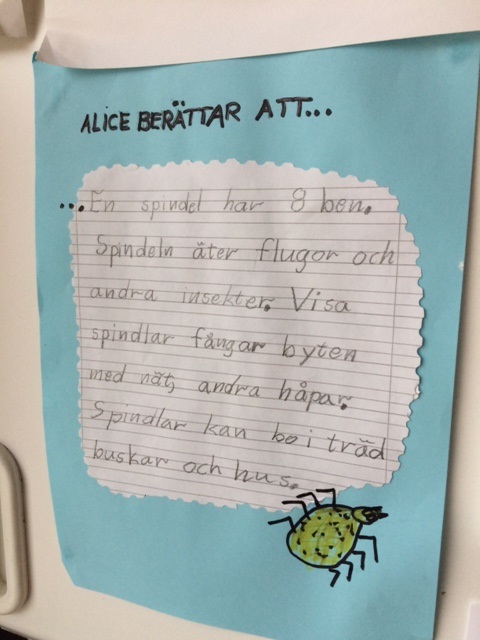 ALICE BERÄTTAR ATT...
...En spindel har 8 ben.
Spindeln äter flugor och
andra insekter. Visa
spindlar fångar byten
med nät, andra håpar.
Spindlar kan bo i träd
buskar och hus.